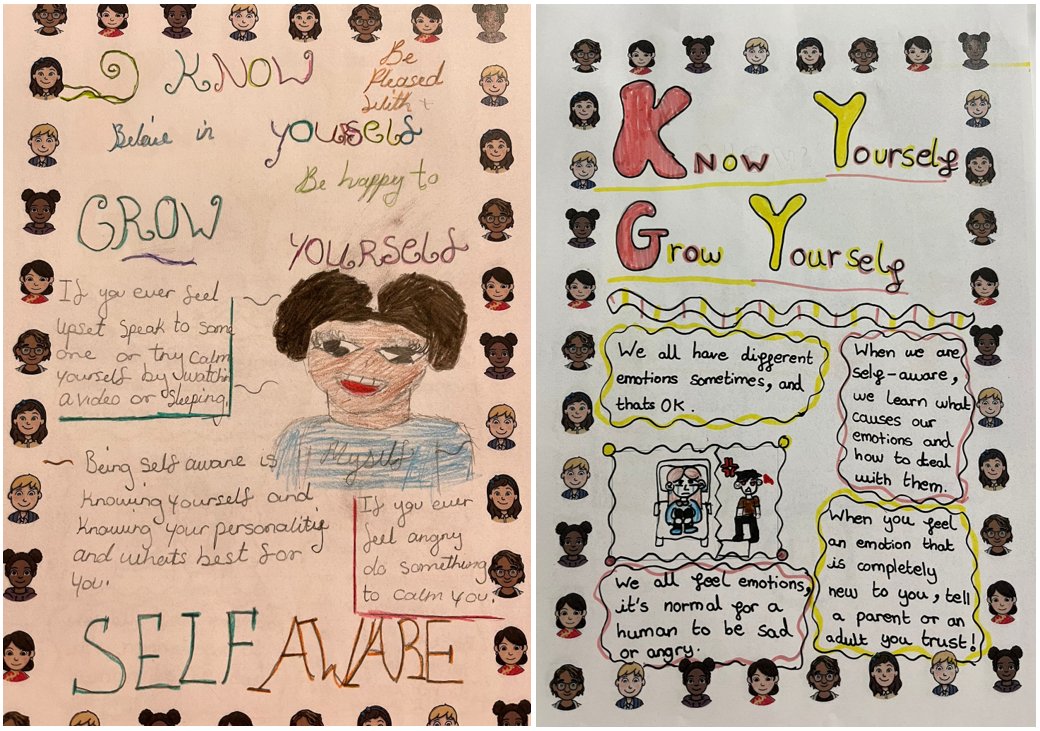 KNOW
Be
Pleased
With
Beleive in
YOURSELF
Be happy to
GROW
YOURSELF
If you ever feel
upset speak to some
one or try calm
yourself by watching
a video or sleeping.
Myself
Being self aware is
knowing yourself and
knowing your personalitie
and whats best for
you.
If you ever
feel angry
do something
to calm you.
SELF AWARE
Know Yourself
Grow Yourself
We all have different
emotions sometimes, and
thats OK.
When we are
self-aware,
we learn what
causes our
emotions and
how to deal
with them.
We all feel emotions,
it's normal for a
human to be sad
or angry.
When you feel
an emotion that
is completely
new to you, tell
a parent or an
adult you trust!